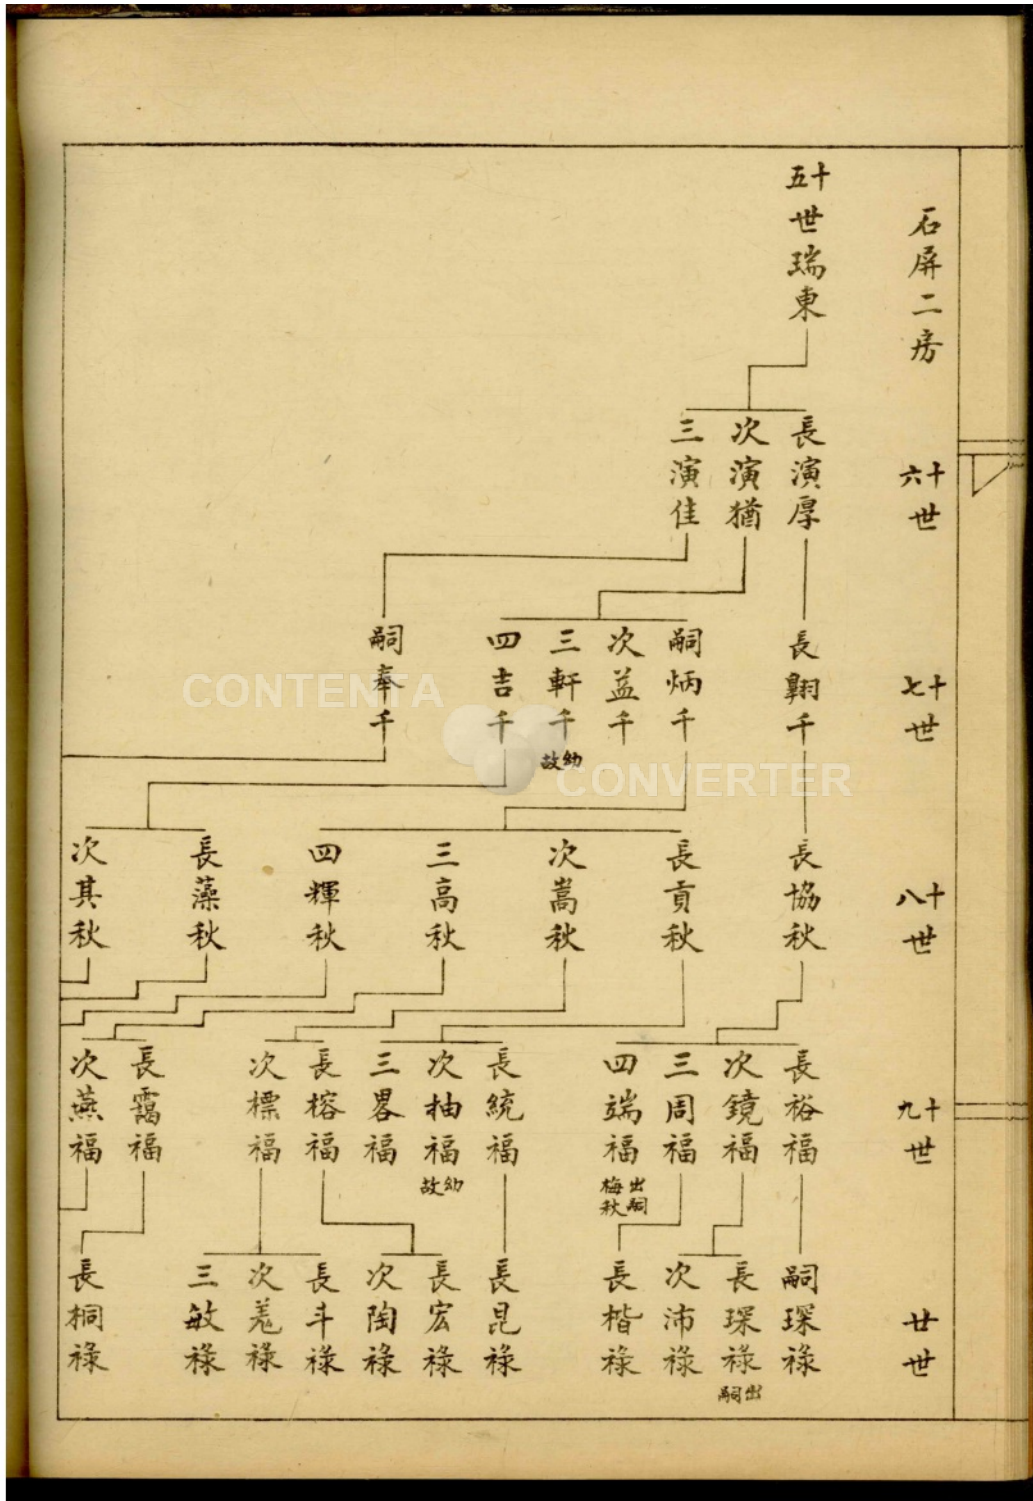 石屏二房
十五世瑞東
十六世
長演厚
次演猶
三演佳
十七世
長翺千
嗣炳千
次益千
三軒千
幼故
四吉千
嗣奉千
十八世
長協秋
長貢秋
次嵩秋
三高秋
四輝秋
長藻秋
次其秋
十九世
長裕福
次鏡福
三周福
四端福
出嗣梅秋
長統福
次柚福
幼故
三畧福
長榕福
次標福
長靄福
次燕福
廿世
嗣琛祿
長琛祿
出嗣
次沛祿
長楷祿
長昆祿
長宏祿
次陶祿
長斗祿
次羗祿
三敏祿
長桐祿
CONTENTA
CONVERTER